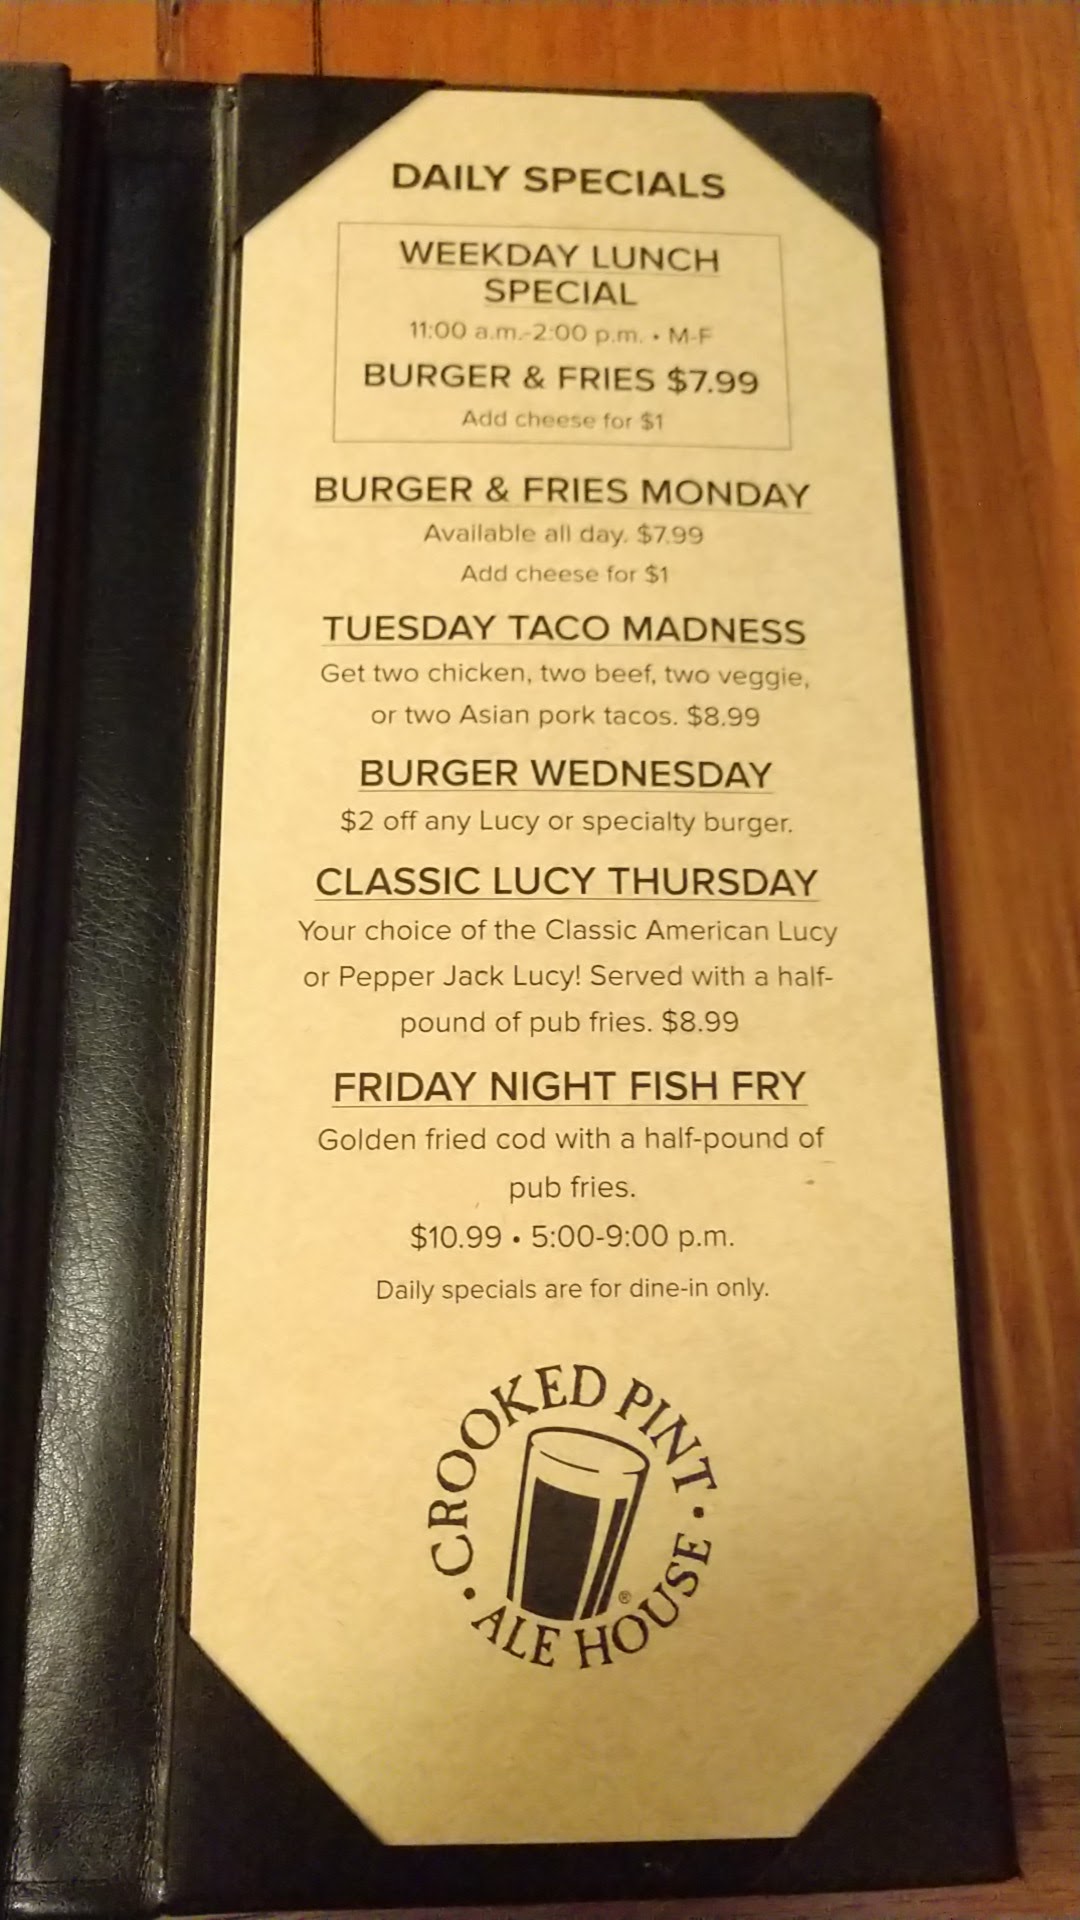 DAILY SPECIALS
WEEKDAY LUNCH
SPECIAL
11:00 a.m.-2:00 p.m. • M-F
BURGER & FRIES $7.99
Add cheese for $1
BURGER & FRIES MONDAY
Available all day. $7.99
Add cheese for $1
TUESDAY TACO MADNESS
Get two chicken, two beef, two veggie,
or two Asian pork tacos. $8.99
BURGER WEDNESDAY
$2 off any Lucy or specialty burger.
CLASSIC LUCY THURSDAY
Your choice of the Classic American Lucy
or Pepper Jack Lucy! Served with a half-
pound of pub fries. $8.99
FRIDAY NIGHT FISH FRY
Golden fried cod with a half-pound of
pub fries.
$10.99 • 5:00-9:00 p.m.
Daily specials are for dine-in only.
• CROOKED PINT •
ALE HOUSE
®